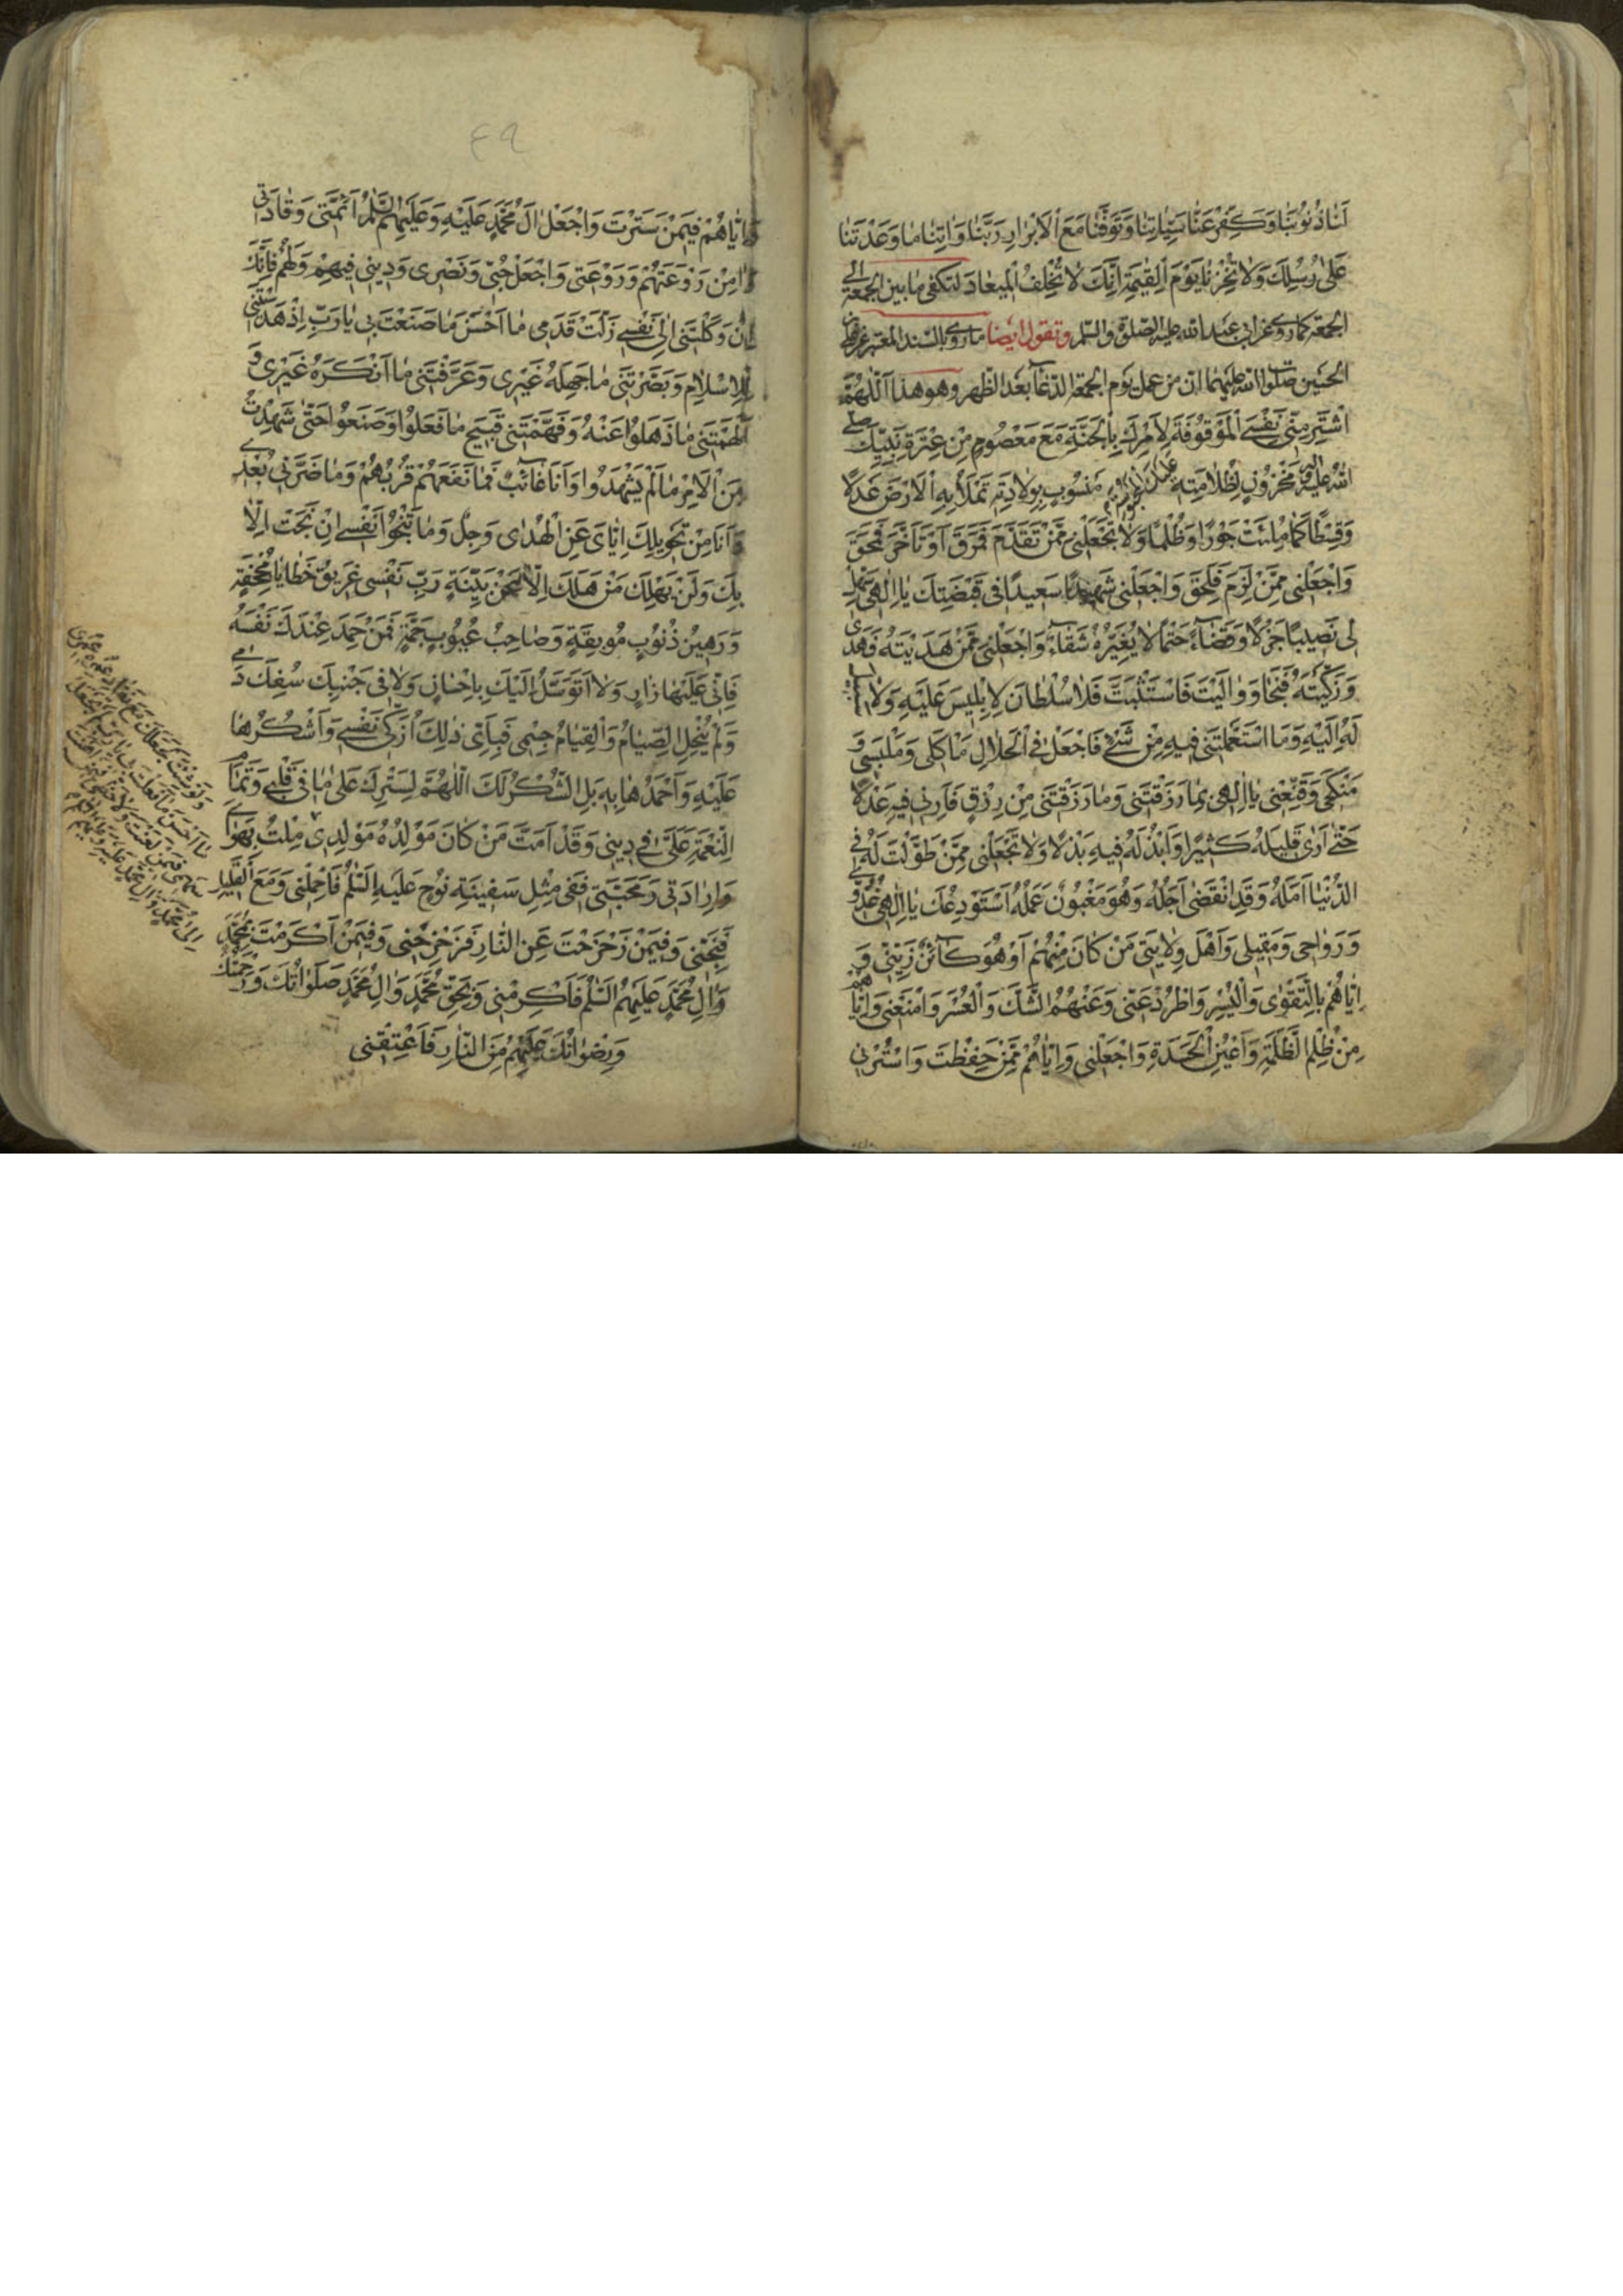 لَنَا ذُنُوبَنَا وَكَفِّرْ عَنَّا سَيِّئَاتِنَا وَتَوَفَّنَا مَعَ الْأَبْرَارِ رَبَّنَا وَاٰتِنَا مَا وَعَدْتَنَا
عَلٰى رُسُلِكَ وَلَا تُخْزِنَا يَوْمَ الْقِيٰمَةِ إِنَّكَ لَا تُخْلِفُ الْمِيعَادَ لتكفى ما بين الجمعة الى
الجمعة كما روى عن ابى عبد الله عليه الصلوة والسلم وتقول ايضا ما روى بالسند المعتبر عن
الحسين صلوات الله عليهما ان من عمل يوم الجمعة الدعاء بعد الظهر وهو هذا اَللّٰهُمَّ
اشْتَرِ مِنِّى نَفْسِىَ الْمَوْقُوفَةَ لِاَمْرِكَ بِالْجَنَّةِ مَعَ مَعْصُومٍ مِنْ عِتْرَةِ نَبِيِّكَ صلى
الله عليه واله مَخْزُونٍ لِظُلَامَتِهِ مَنْسُوبٍ بِوِلَادَتِهِ تَمْلَأُ بِهِ الْاَرْضَ عَدْلًا
وَقِسْطًا كَمَا مُلِئَتْ جَوْرًا وَظُلْمًا وَلَا تَجْعَلْنِى مِمَّنْ تَقَدَّمَ فَمَرَقَ اَوْ تَاَخَّرَ فَمُحِقَ
وَاجْعَلْنِى مِمَّنْ لَزِمَ فَلَحِقَ وَاجْعَلْنِى شَهِيدًا سَعِيدًا فِى قَبْضَتِكَ يَا اِلٰهِى سَهِّلْ
لِى نَصِيبًا جَزْلًا وَقَضَاءً حَتْمًا لَا يُغَيِّرُهُ شَقَاءٌ وَاجْعَلْنِى مِمَّنْ هَدَيْتَهُ فَهَدٰى
وَزَكَّيْتَهُ فَنَجَا وَوَالَيْتَ فَاسْتَثْبَتَ فَلَا سُلْطَانَ لِاِبْلِيسَ عَلَيْهِ وَلَا
لَهُ اِلَيْهِ وَمَا اسْتَعْمَلْتَنِى فِيهِ مِنْ شَىْءٍ فَاجْعَلْ فِى الْحَلَالِ مَاْكَلِى وَمَلْبَسِى وَ
مَنْكَحِى وَقَنِّعْنِى يَا اِلٰهِى بِمَا رَزَقْتَنِى وَمَا رَزَقْتَنِى مِنْ رِزْقٍ فَاَرِنِى فِيهِ عَدْلًا
حَتّٰى اَرٰى قَلِيلَهُ كَثِيرًا وَاَبْذُلَهُ فِيهِ بَذْلًا وَلَا تَجْعَلْنِى مِمَّنْ طَوَّلْتَ لَهُ فِى
الدُّنْيَا اَمَلَهُ وَقَدِ انْقَضٰى اَجَلُهُ وَهُوَ مَغْبُونٌ عَمَلُهُ اَسْتَوْدِعُكَ يَا اِلٰهِى غُدُوِّى
وَرَوَاحِى وَمَقِيلِى وَاَهْلَ وِلَايَتِى مَنْ كَانَ مِنْهُمْ اَوْ هُوَ كَائِنٌ زَيِّنِّى وَ
اِيَّاهُمْ بِالتَّقْوٰى وَالْيُسْرِ وَاطْرُدْ عَنِّى وَعَنْهُمُ الشَّكَّ وَالْعُسْرَ وَامْنَعْنِى وَاِيَّاهُمْ
مِنْ ظُلْمِ الظَّلَمَةِ وَاَعْيُنِ الْحَسَدَةِ وَاجْعَلْنِى وَاِيَّاهُمْ مِمَّنْ حَفِظْتَ وَاسْتُرْنِى
٤٩
وَاِيَّاهُمْ فِيمَنْ سَتَرْتَ وَاجْعَلْ اٰلَ مُحَمَّدٍ عَلَيْهِ وَعَلَيْهِمُ السَّلٰمُ اَئِمَّتِى وَقَادَتِى
وَاٰمِنْ رَوْعَتَهُمْ وَرَوْعَتِى وَاجْعَلْ حُبِّى وَنَصْرِى وَدِينِى فِيهِمْ وَلَهُمْ فَاِنَّكَ
اِنْ وَكَلْتَنِى اِلٰى نَفْسِى زَلَّتْ قَدَمِى مَا اَحْسَنَ مَا صَنَعْتَ بِى يَا رَبِّ اِذْ هَدَيْتَنِى
لِلْاِسْلَامِ وَبَصَّرْتَنِى مَا جَهِلَهُ غَيْرِى وَعَرَّفْتَنِى مَا اَنْكَرَهُ غَيْرِى وَ
اَلْهَمْتَنِى مَا ذَهَلُوا عَنْهُ وَفَهَّمْتَنِى قَبِيحَ مَا فَعَلُوا وَصَنَعُوا حَتّٰى شَهِدْتُ
مِنَ الْاَمْرِ مَا لَمْ يَشْهَدُوا وَاَنَا غَائِبٌ فَمَا نَفَعَهُمْ قُرْبُهُمْ وَمَا ضَرَّنِى بُعْدِى
وَاَنَا مِنْ تَحْوِيلِكَ اِيَّاىَ عَنِ الْهُدٰى وَجِلٌ وَمَا تَنْجُوا نَفْسِى اِنْ نَجَتْ اِلَّا
بِكَ وَلَنْ يَهْلِكَ مَنْ هَلَكَ اِلَّا عَنْ بَيِّنَةٍ رَبِّ نَفْسِى غَرِيقُ خَطَايَا مُجْحِفَةٍ
وَرَهِينُ ذُنُوبٍ مُوبِقَةٍ وَصَاحِبُ عُيُوبٍ جَمَّةٍ فَمَنْ حَمِدَ عِنْدَكَ نَفْسَهُ
فَاِنِّى عَلَيْهَا زَارٍ وَلَا اَتَوَسَّلُ اِلَيْكَ بِاِحْسَانٍ وَلَا فِى جَنْبِكَ سُفِكَ دَمِى
وَلَمْ يُنْحِلِ الصِّيَامُ وَالْقِيَامُ جِسْمِى فَبِاَىِّ ذٰلِكَ اُزَكِّى نَفْسِى وَاَشْكُرُهَا
عَلَيْهِ وَاَحْمَدُهَا بِهِ بَلِ الشُّكْرُ لَكَ اَللّٰهُمَّ لِسَتْرِكَ عَلٰى مَا فِى قَلْبِى وَتَمَامِ
النِّعْمَةِ عَلَىَّ فِى دِينِى وَقَدْ اَمَتَّ مَنْ كَانَ مَوْلِدُهُ مَوْلِدِى
وَاِرَادَتِى وَمَحَبَّتِى فَفِى مِثْلِ سَفِينَةِ نُوحٍ عَلَيْهِ السَّلٰمُ فَاحْمِلْنِى وَمَعَ الْقَلِيلِ
فَنَجِّنِى وَفِيمَنْ زَحْزَحْتَ عَنِ النَّارِ فَزَحْزِحْنِى وَفِيمَنْ اَكْرَمْتَ بِمُحَمَّدٍ
وَاٰلِ مُحَمَّدٍ عَلَيْهِمُ السَّلٰمُ فَاَكْرِمْنِى وَبِحَقِّ مُحَمَّدٍ وَاٰلِ مُحَمَّدٍ صَلَوَاتُكَ وَرَحْمَتُكَ
وَرِضْوَانُكَ عَلَيْهِمْ مِنَ النَّارِ فَاَعْتِقْنِى